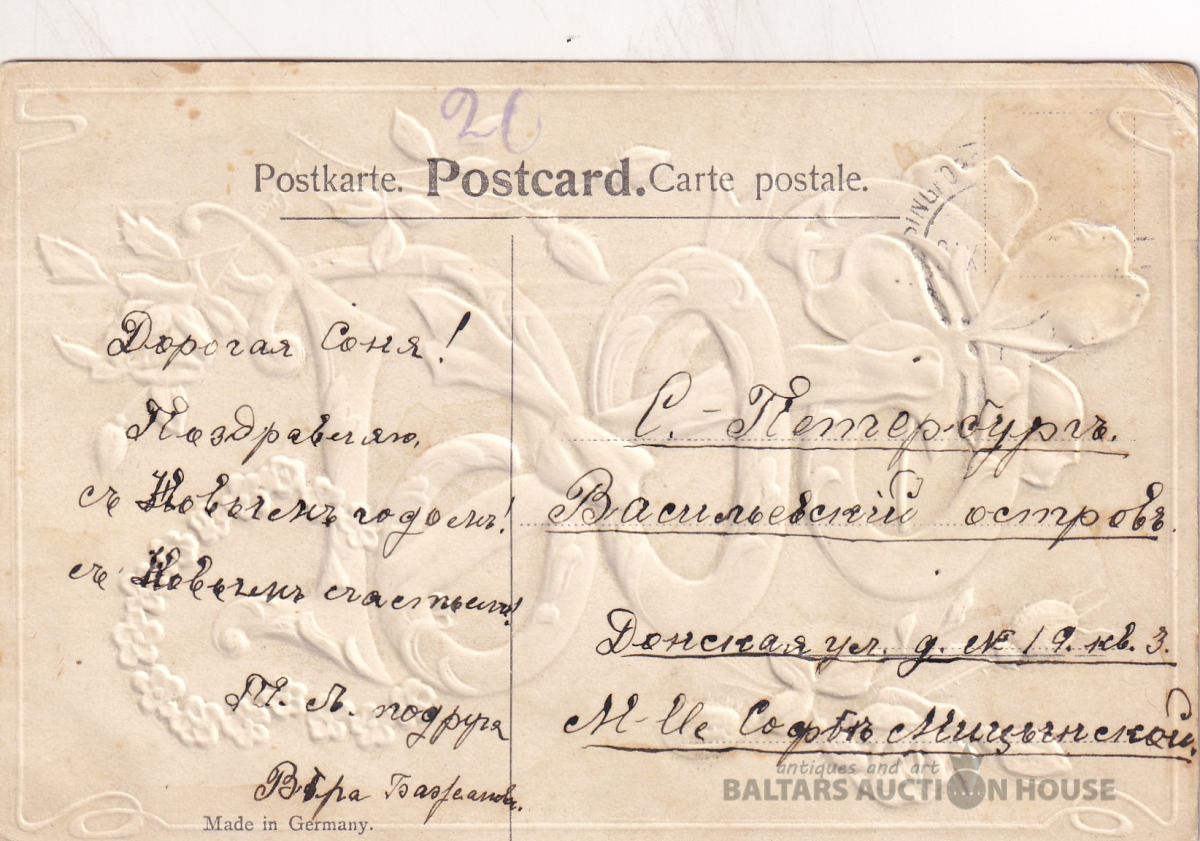 20
Postkarte. Postcard. Carte postale.
Дорогая Соня!
Поздравляю,
съ Новымъ годомъ!
съ Новымъ счастьемъ!
Т. Л. подруга
Вѣра
Made in Germany.
С.-Петербургъ.
Васильевскій островъ.
Донская ул. д. № 19. кв. 3.
M-lle Софьѣ Мицынской.
antiques and art
BALTARS AUCTION HOUSE